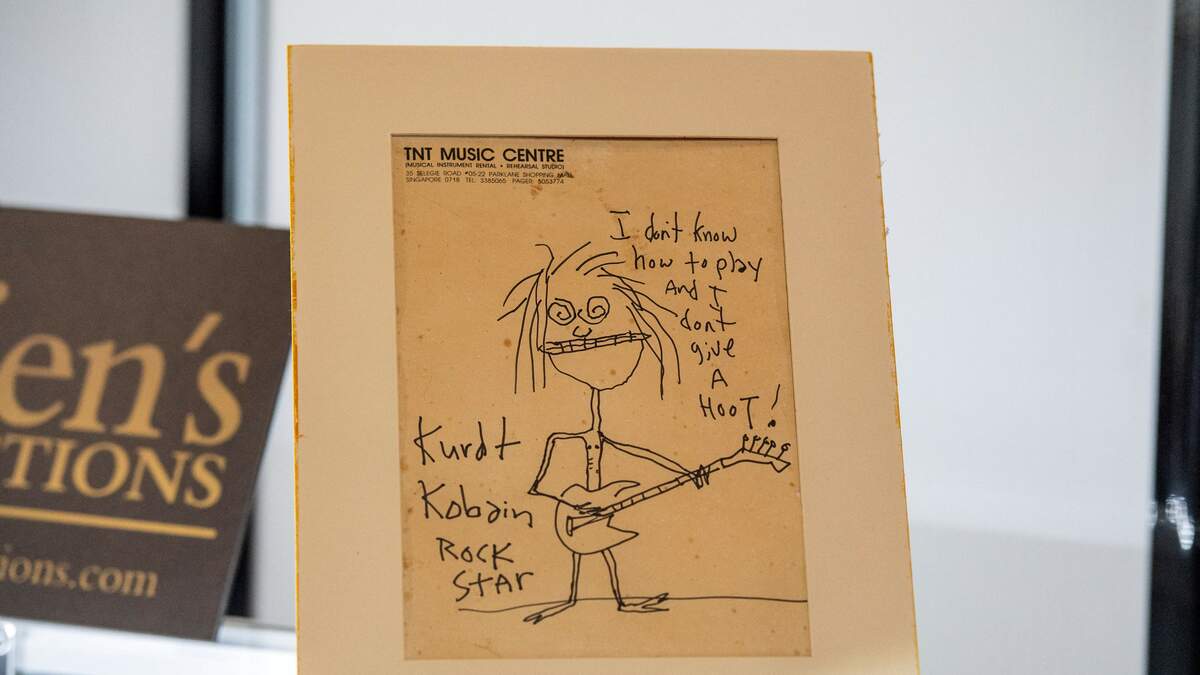 TNT MUSIC CENTRE
(MUSICAL INSTRUMENT RENTAL • REHEARSAL STUDIO)
35 SELEGIE ROAD #05-22 PARKLANE SHOPPING MALL
SINGAPORE 0718 TEL: 3385065 PAGER: 5053774
I don't know
how to play
And I
don't
give
A
HooT!
Kurdt
Kobain
ROCK
STAr
en's
CTIONS
ions.com